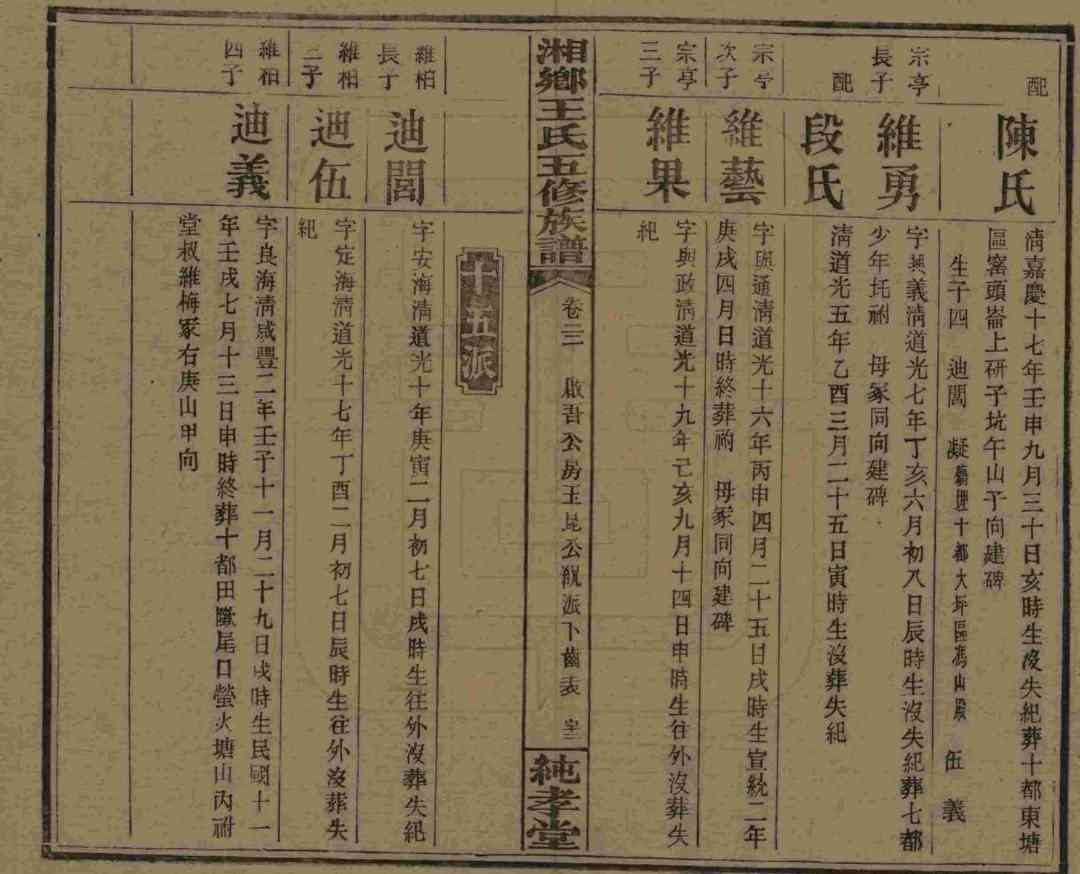 配
陳氏
清嘉慶十七年壬申九月三十日亥時生沒失紀葬十都東塘
區窰頭崙上研子坑午山子向建碑
生子四 迪閭 凝 十都大坪區馮山 伍 義
宗亭
長子
維勇
字興義清道光七年丁亥六月初八日辰時生沒失紀葬七都
少年圫祔 母冢同向建碑
配
段氏
清道光五年乙酉三月二十五日寅時生沒葬失紀
宗亭
次子
維藝
字與通清道光十六年丙申四月二十五日戌時生宣統二年
庚戌四月日時終葬祔 母冢同向建碑
宗亭
三子
維果
字與政清道光十九年己亥九月十四日申時生往外沒葬失
紀
湘鄉王氏五修族譜
卷三三 啟吾公房玉昆公 派下齒表
純孝堂
十五派
維柏
長子
迪閭
字安海清道光十年庚寅二月初七日戌時生往外沒葬失紀
維柏
三子
迪伍
字定海清道光十七年丁酉二月初七日辰時生往外沒葬失
紀
維柏
四子
迪義
字良海清咸豐二年壬子十一月二十九日戌時生民國十一
年壬戌七月十三日申時終葬十都田隴尾口螢火塘山內祔
堂叔維梅冢右庚山甲向